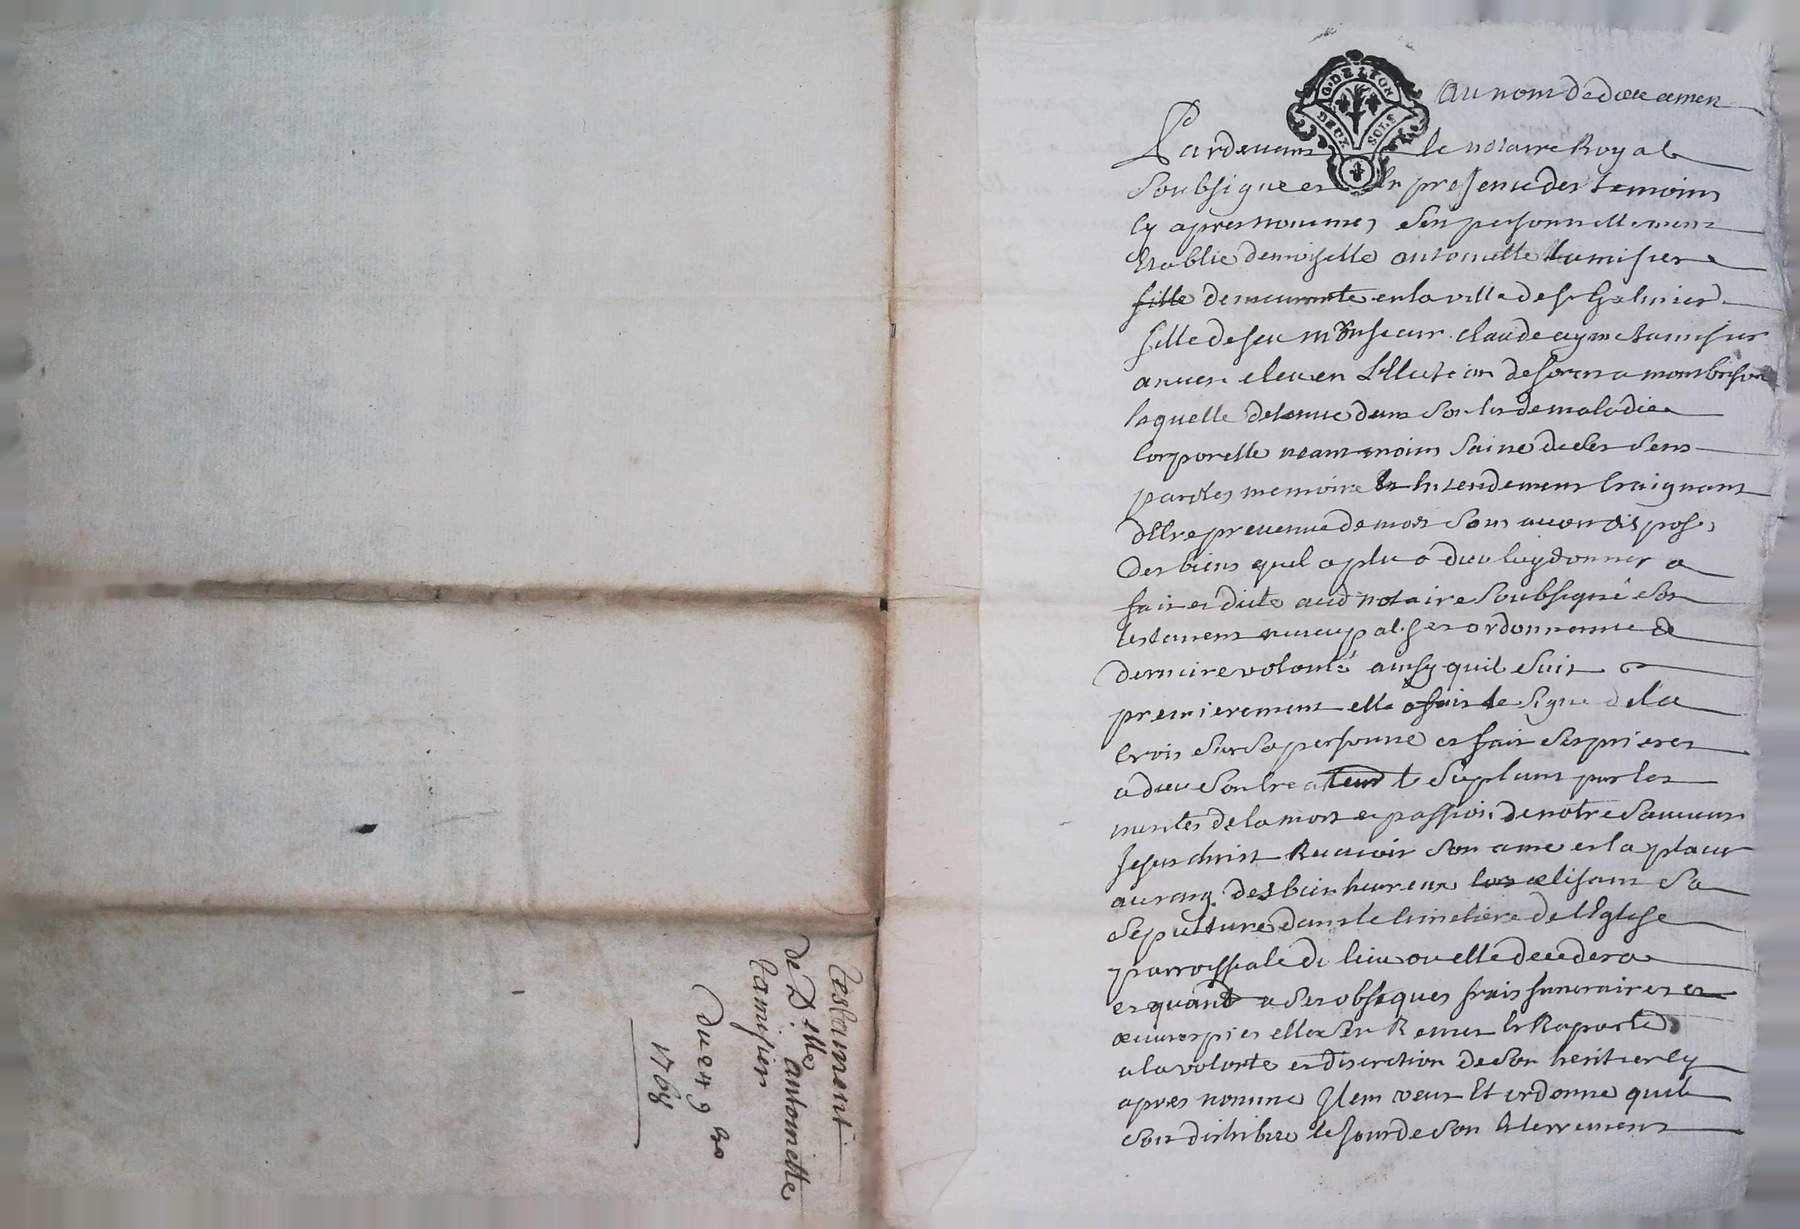 Testament
de D.elle antoinette
tamisier
du 24 9 bre
1768
G. DE LION
DEUX SOLS
Au nom de dieu amen
Pardevant le notaire Royal
Soubsigne et En presence des temoins
Cy apres nommes s'est personnellement
Etablie demoiselle antoinette tamisier
fille demeurante en la ville de St Galmier
fille de feu monsieur claude ayme tamisier
ancien eleu en L'Election de forez a montbrison
laquelle detenue dans son lit de maladie
Corporelle neantmoins saine de ses sens
paroles memoire Et Entendement Craignant
d'Etre prevenue de mort sans avoir dispose
des biens quel a plu a dieu luy donner a
fait et dicte aud notaire Soubsigné son
testament nuncupatif et ordonnance de
derniere volonté ainsy quil suit
premierement elle a fait le Signe de la
Croix sur sa personne et fait ses prieres
a dieu son Createur le supliant par les
merites de la mort et passion de notre Sauveur
Jesus christ Recevoir son ame et la placer
au rang des bien heureux elisant sa
sepulture dans le Cimetiere de l'Eglise
parroissiale du lieu ou elle decedera
et quant a ses obseques frais funeraires et
œuvres pies elle s'en Remet Et Raporte
a la volonte et discretion de son heritier cy
apres nomme Item veut Et ordonne quil
soit distribue le jour de son Enterrement